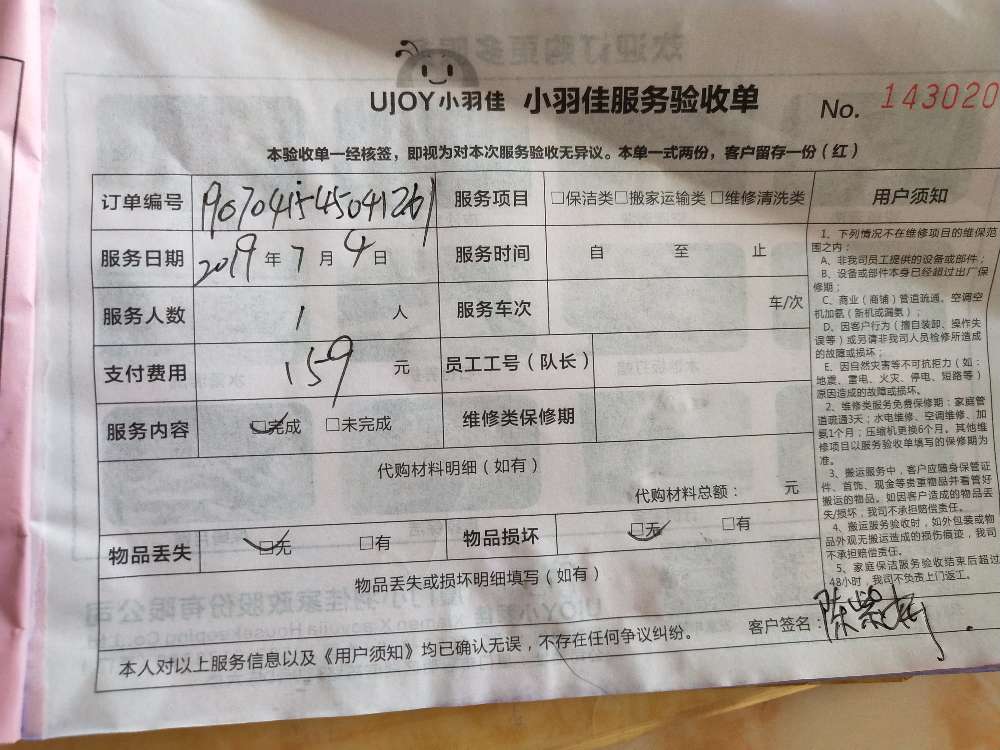 UJOY小羽佳 小羽佳服务验收单 No. 143020
本验收单一经核签，即视为对本次服务验收无异议。本单一式两份，客户留存一份（红）
订单编号 190704154504126 服务项目 □保洁类□搬家运输类□维修清洗类
服务日期 2019年7月4日 服务时间 自 至 止
服务人数 1 人 服务车次 车/次
支付费用 159 元 员工工号（队长）
服务内容 □完成 □未完成 维修类保修期
代购材料明细（如有）
代购材料总额： 元
物品丢失 □无 □有 物品损坏 □无 □有
物品丢失或损坏明细填写（如有）
客户签名：
本人对以上服务信息以及《用户须知》均已确认无误，不存在任何争议纠纷。
用户须知
1、下列情况不在维修项目的维保范
围之内：
A、非我司员工提供的设备或部件；
B、设备或部件本身已经超过出厂保
修期；
C、商业（商铺）管道疏通、空调空
机加氨（新机或漏氨）；
D、因客户行为（擅自装卸、操作失
误等）或另请非我司人员检修所造成
的故障或损坏；
E、因自然灾害等不可抗拒力（如：
地震、雷电、火灾、停电、短路等）
原因造成的故障或损坏。
2、维修类服务免费保修期：家庭管
道疏通3天；水电维修、空调维修、加
氨1个月；压缩机更换6个月。其他维
修项目以服务验收单填写的保修期为
准。
3、搬运服务中，客户应随身保管证
件、首饰、现金等贵重物品并看管好
搬运的物品。如因客户造成的物品丢
失/损坏，我司不承担赔偿责任。
4、搬运服务验收时，如外包装或物
品外观无搬运造成的损伤痕迹，我司
不承担赔偿责任。
5、家庭保洁服务验收结束后超过
48小时，我司不负责上门返工。